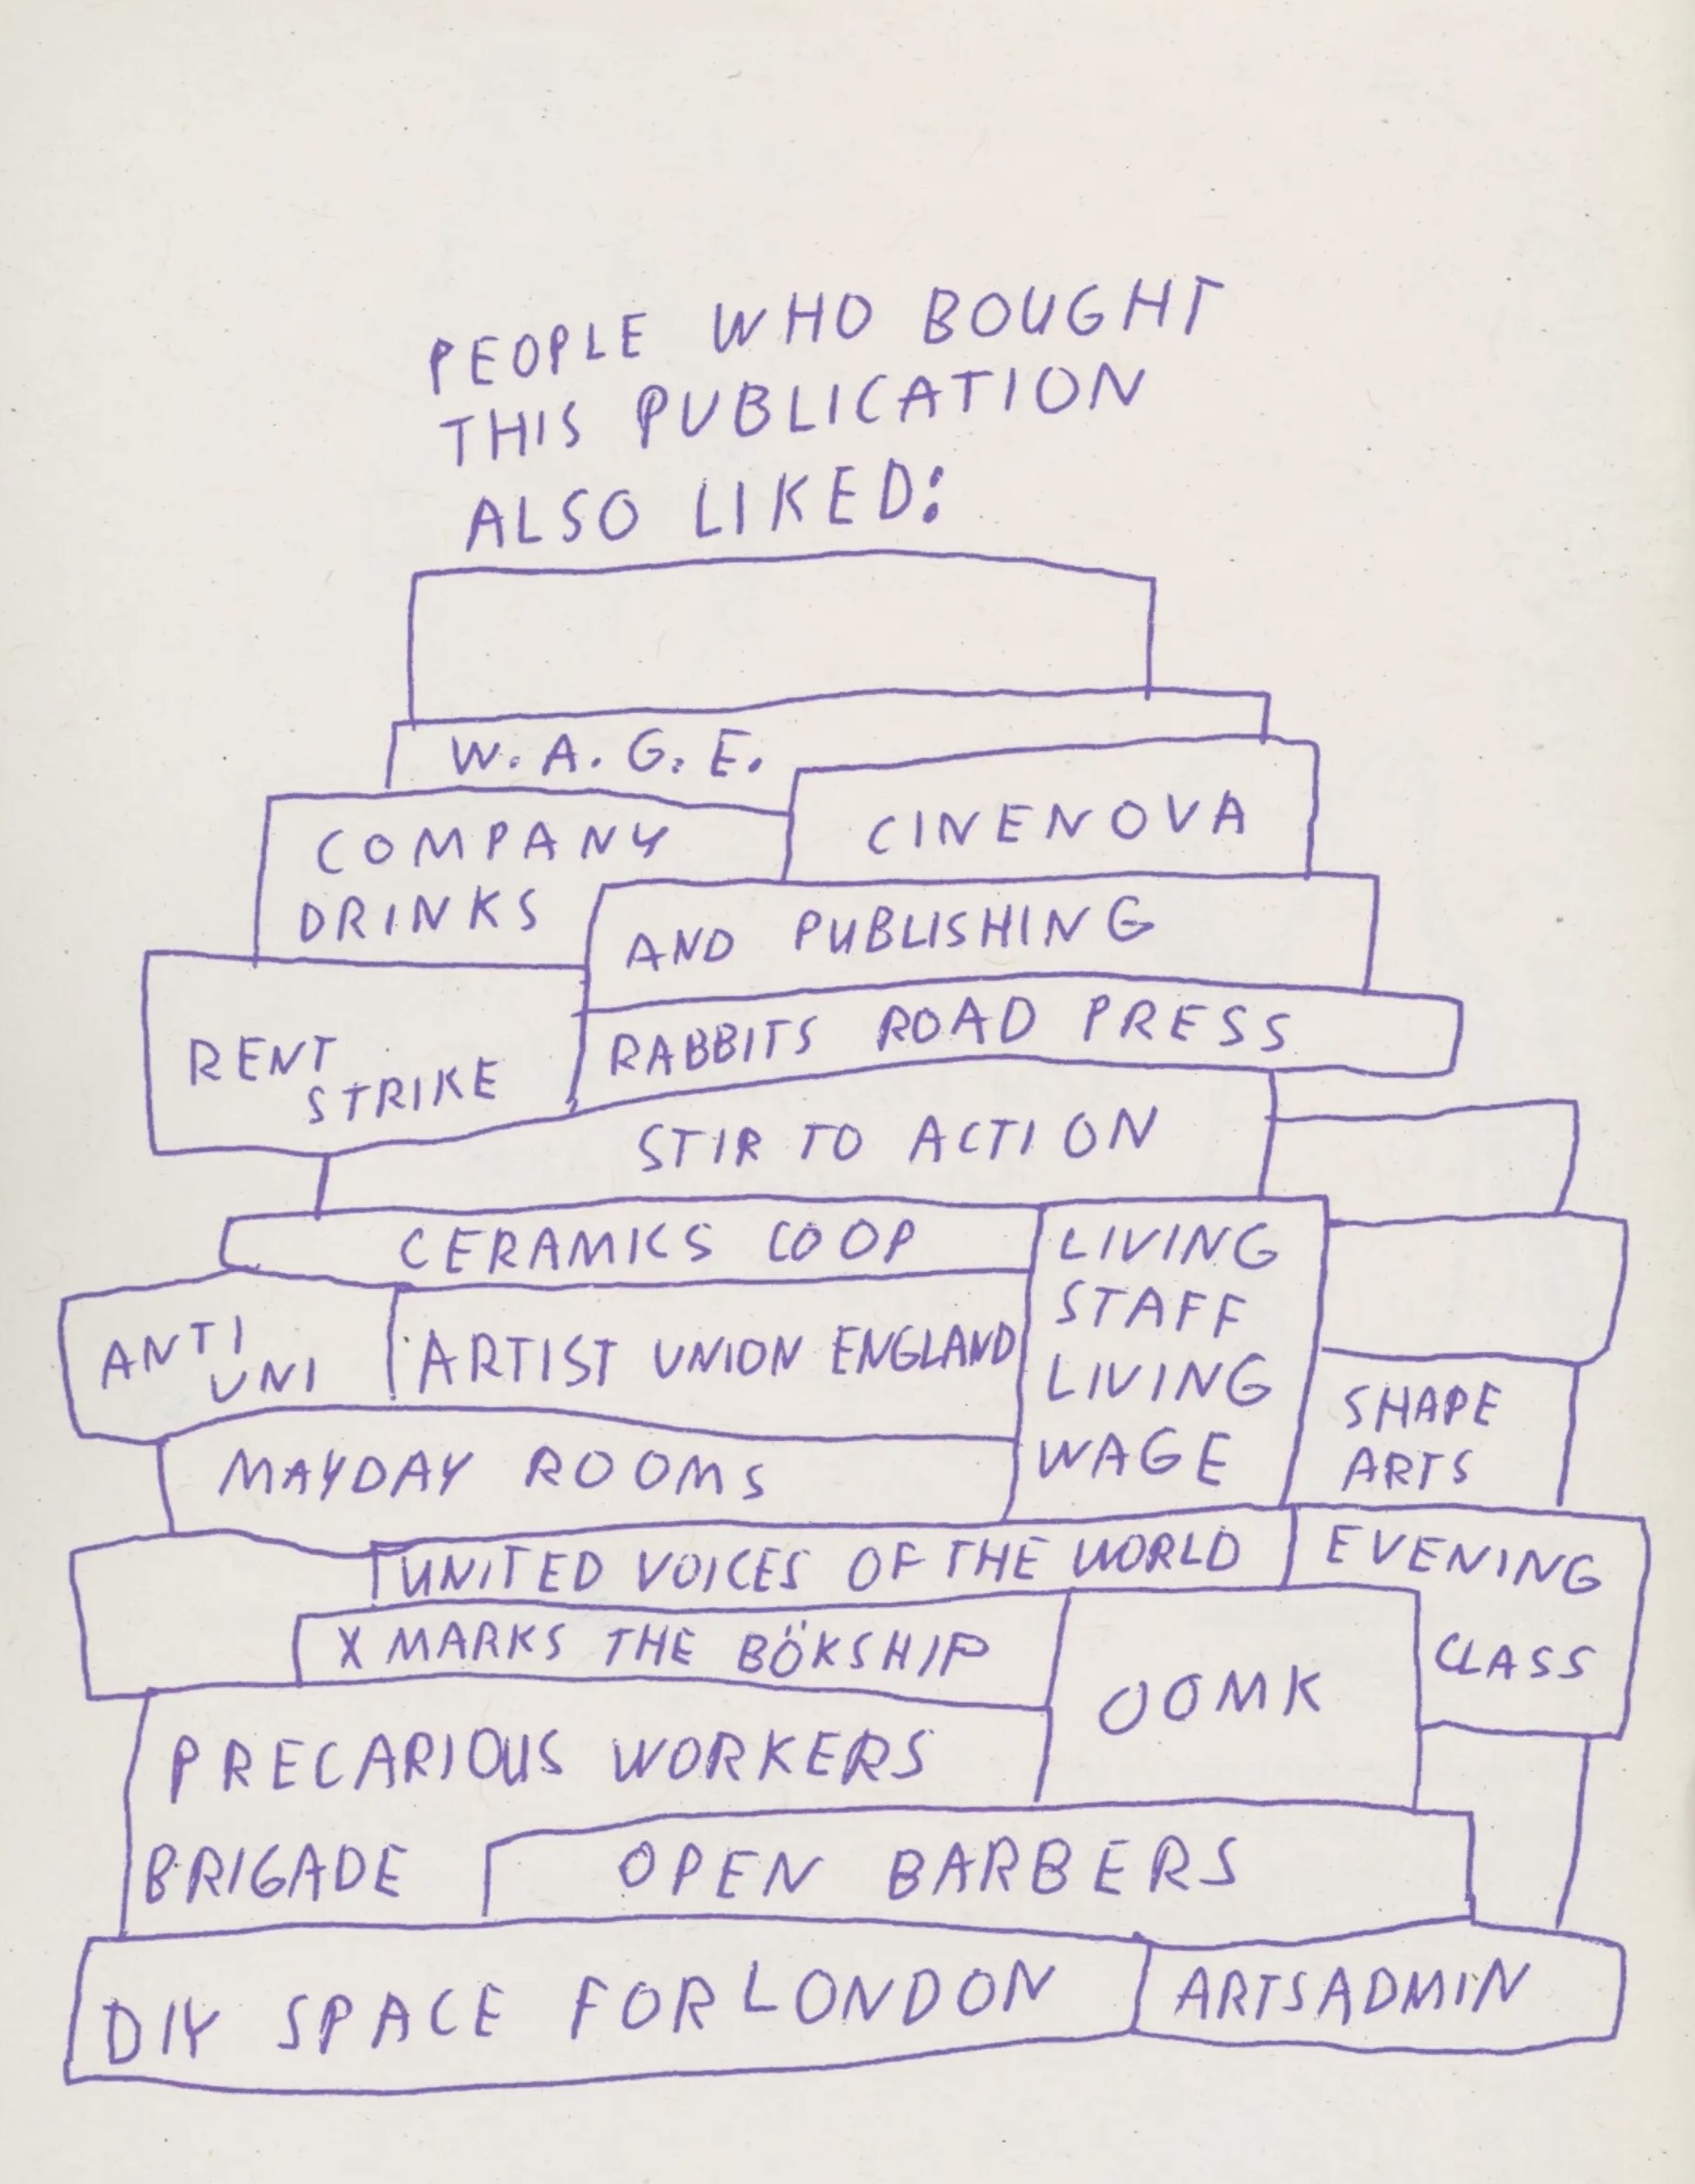 PEOPLE WHO BOUGHT
THIS PUBLICATION
ALSO LIKED:
W.A.G.E.
COMPANY
DRINKS
CINENOVA
AND PUBLISHING
RENT
STRIKE
RABBITS ROAD PRESS
STIR TO ACTION
CERAMICS COOP
LIVING
STAFF
LIVING
WAGE
ANTI
UNI
ARTIST UNION ENGLAND
SHAPE
ARTS
MAYDAY ROOMS
UNITED VOICES OF THE WORLD
EVENING
CLASS
X MARKS THE BÖKSHIP
OOMK
PRECARIOUS WORKERS
BRIGADE
OPEN BARBERS
DIY SPACE FOR LONDON
ARTSADMIN